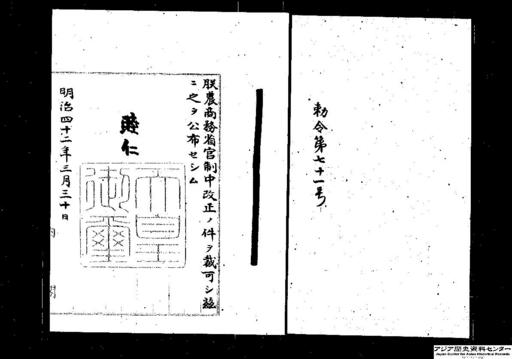 勅令第七十一号
朕農商務省官制中改正ノ件ヲ裁可シ茲
ニ之ヲ公布セシム
睦仁
天皇御璽
明治四十二年三月三十日
内閣
アジア歴史資料センター
Japan Center for Asian Historical Records